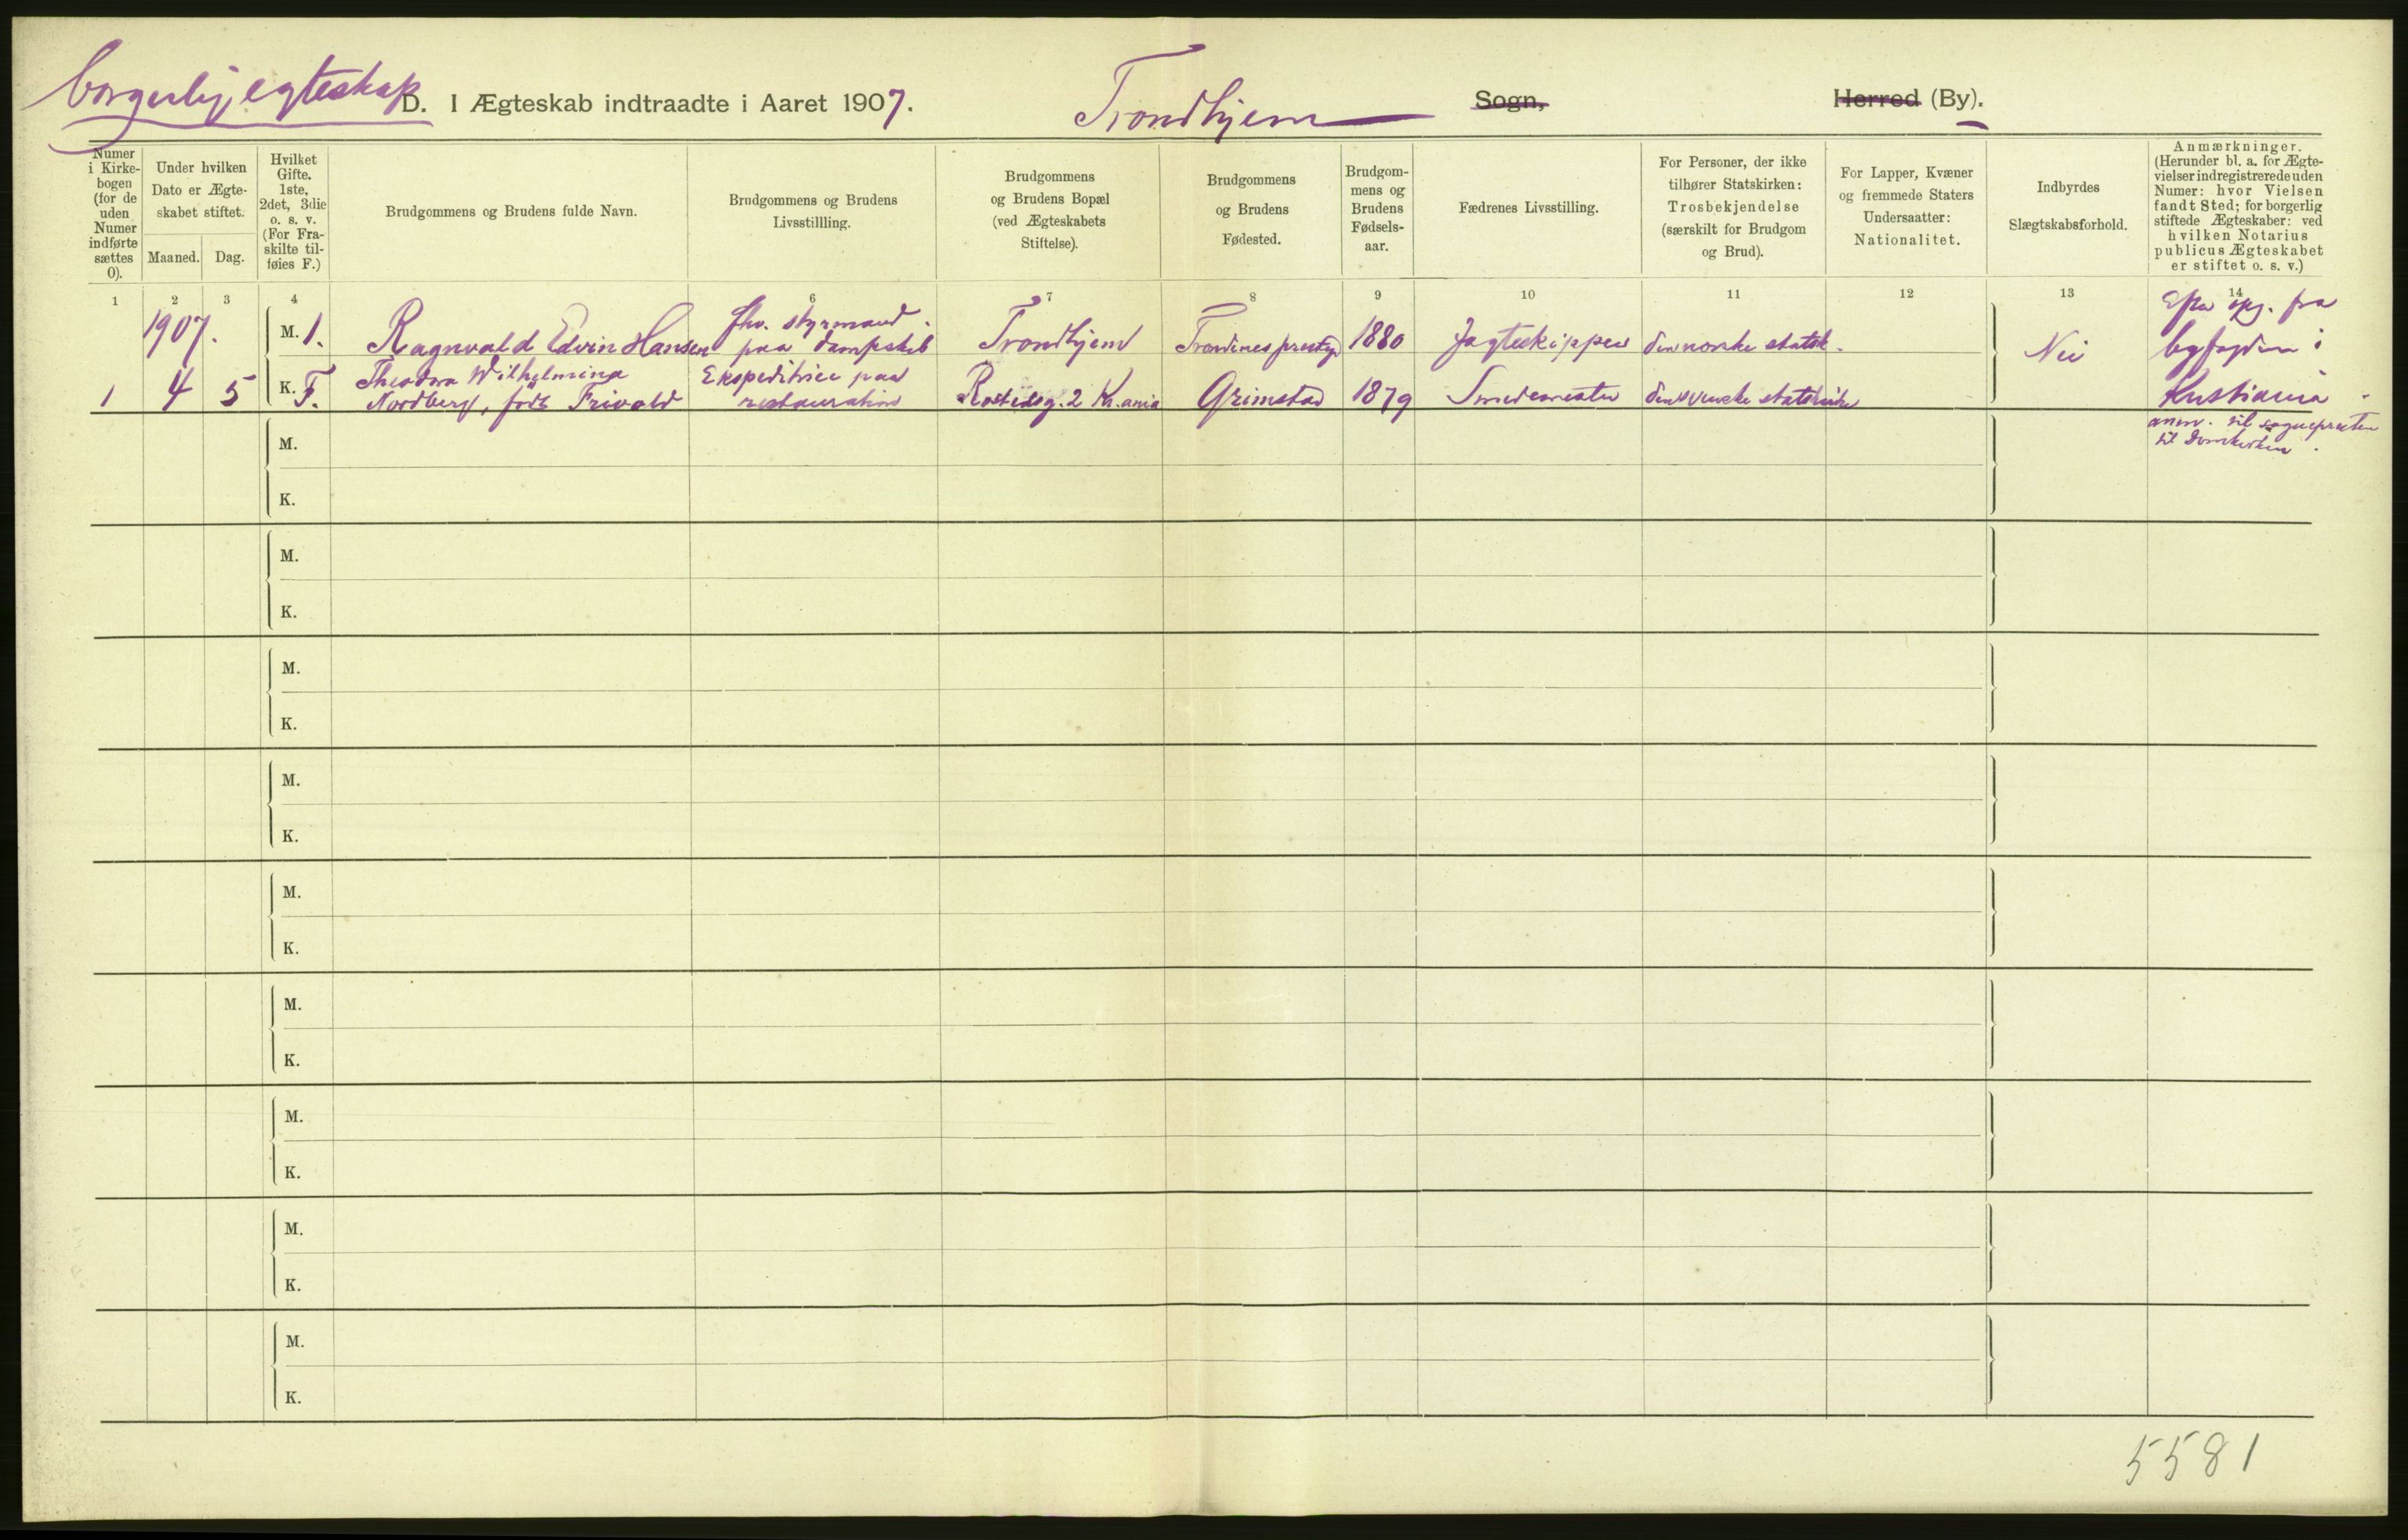 borgerlig egteskap
D. I Ægteskab indtraadte i Aaret 1907. Trondhjem Sogn, Herred (By).
Numer
i Kirke-
bogen
(for de
uden
Numer
indførte
sættes
0).
Under hvilken
Dato er Ægte-
skabet stiftet.
Maaned. Dag.
Hvilket
Gifte.
1ste,
2det, 3die
o. s. v.
(For Fra-
skilte til-
føies F.)
Brudgommens og Brudens fulde Navn.
Brudgommens og Brudens
Livsstillling.
Brudgommens
og Brudens Bopæl
(ved Ægteskabets
Stiftelse).
Brudgommens
og Brudens
Fødested.
Brudgom-
mens og
Brudens
Fødsels-
aar.
Fædrenes Livsstilling.
For Personer, der ikke
tilhører Statskirken:
Trosbekjendelse
(særskilt for Brudgom
og Brud).
For Lapper, Kvæner
og fremmede Staters
Undersaatter:
Nationalitet.
Indbyrdes
Slægtskabsforhold.
Anmærkninger.
(Herunder bl. a. for Ægte-
vielser indregistrerede uden
Numer: hvor Vielsen
fandt Sted; for borgerlig
stiftede Ægteskaber: ved
hvilken Notarius
publicus Ægteskabet
er stiftet o. s. v.)
1 2 3 4 6 7 8 9 10 11 12 13 14
1907.
1 4 5
M. 1.
Ragnvald Edvin Hansen
fhv. styrmand
paa dampskib
Trondhjem
Trondenes prestgj
1880
Jagteskipper
den norske statsk.
K. F.
Theodora Wilhelmina
Nordberg, født Frivold
Ekspeditrice paa
restauration
Rostedsg. 2 Kr.ania
Grimstad
1879
Smedemester
den svenske statskirke
Nei
Efter opg. fra
byfogden i
Kristiania
anm. til sognepresten
til Domkirken.
M.
K.
M.
K.
M.
K.
M.
K.
M.
K.
M.
K.
M.
K.
M.
K.
M.
K.
5581